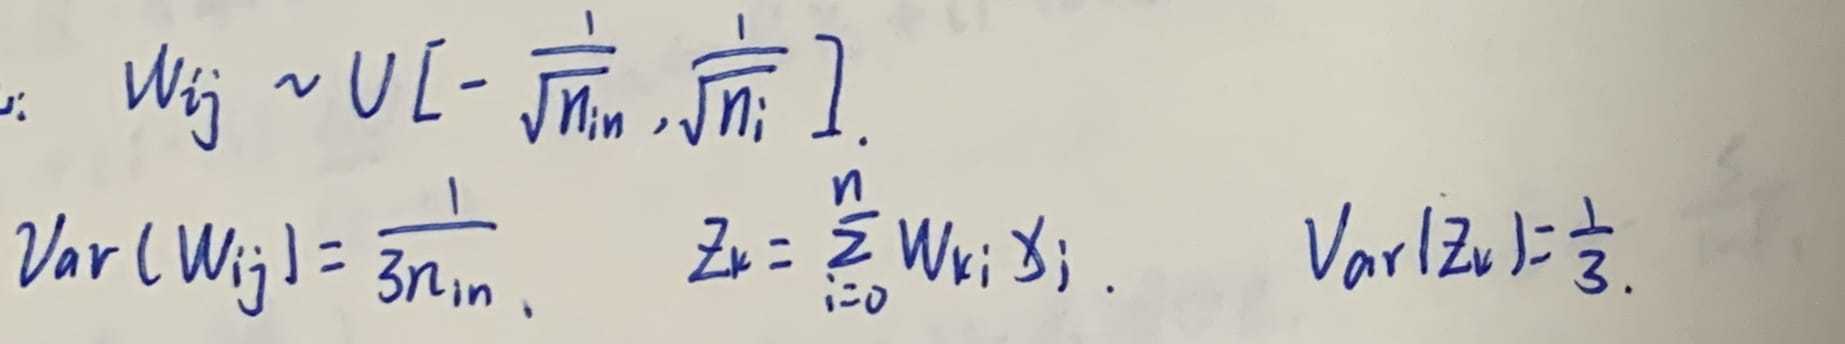 : Wij ~ U[-1/√nin, 1/√ni].
Var(Wij) = 1/3nin. Zk = Σ_{i=0}^{n} Wki xi. Var(Zk) = 1/3.